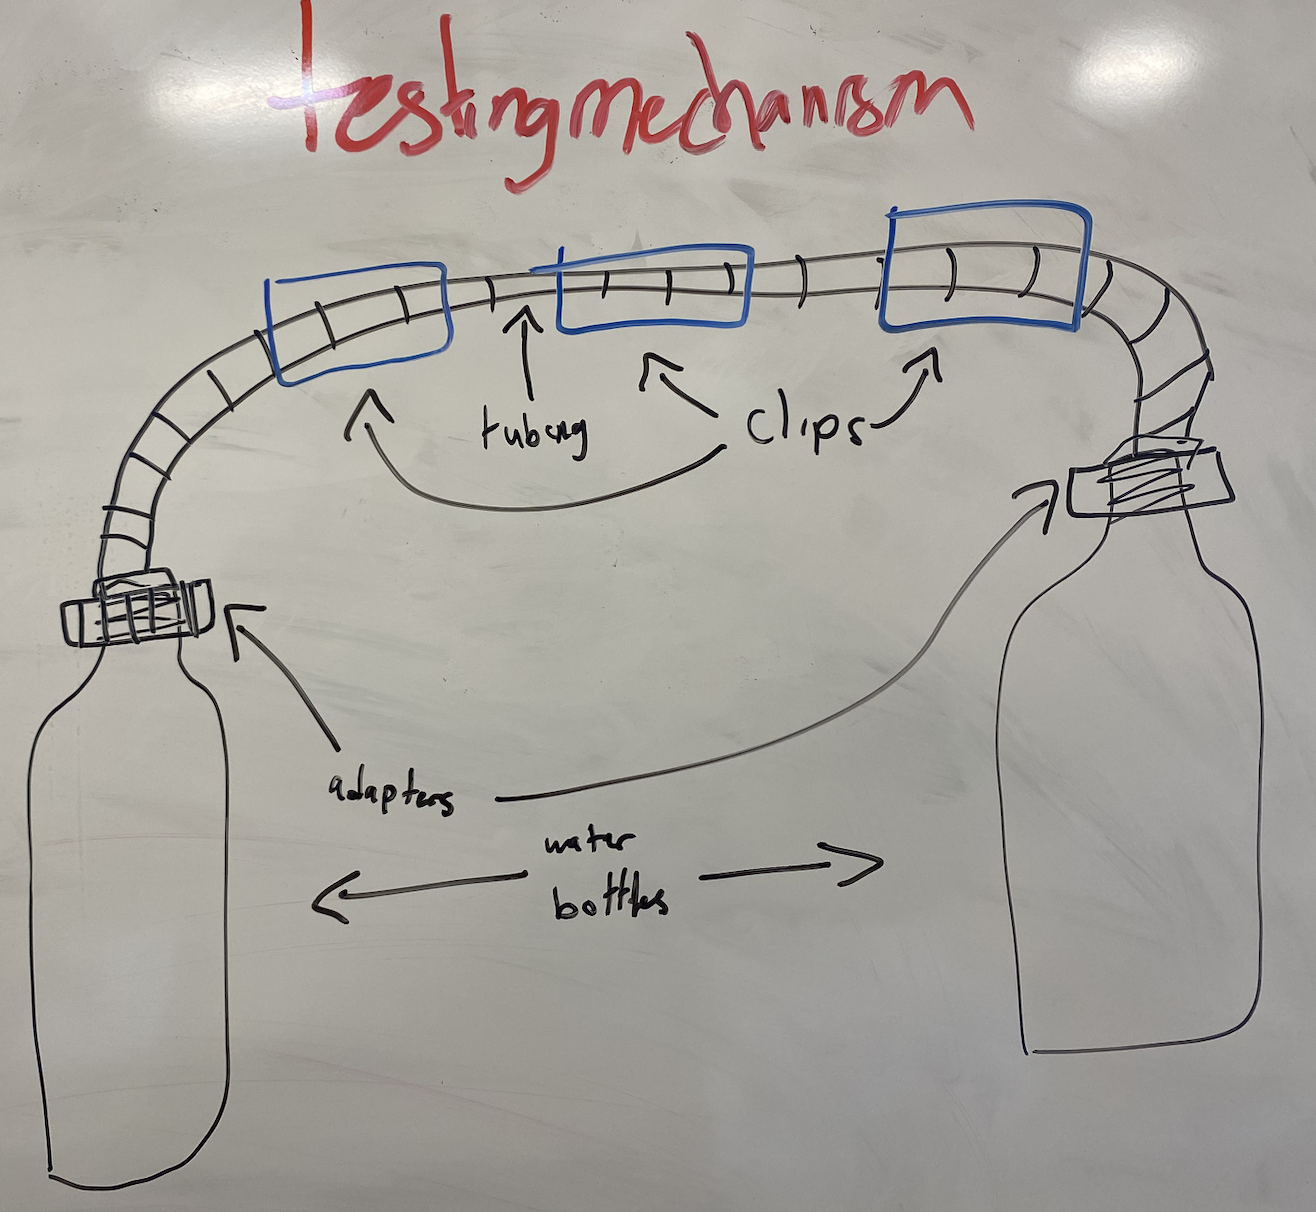 testing mechanism
tubing
clips
adapters
water
bottles